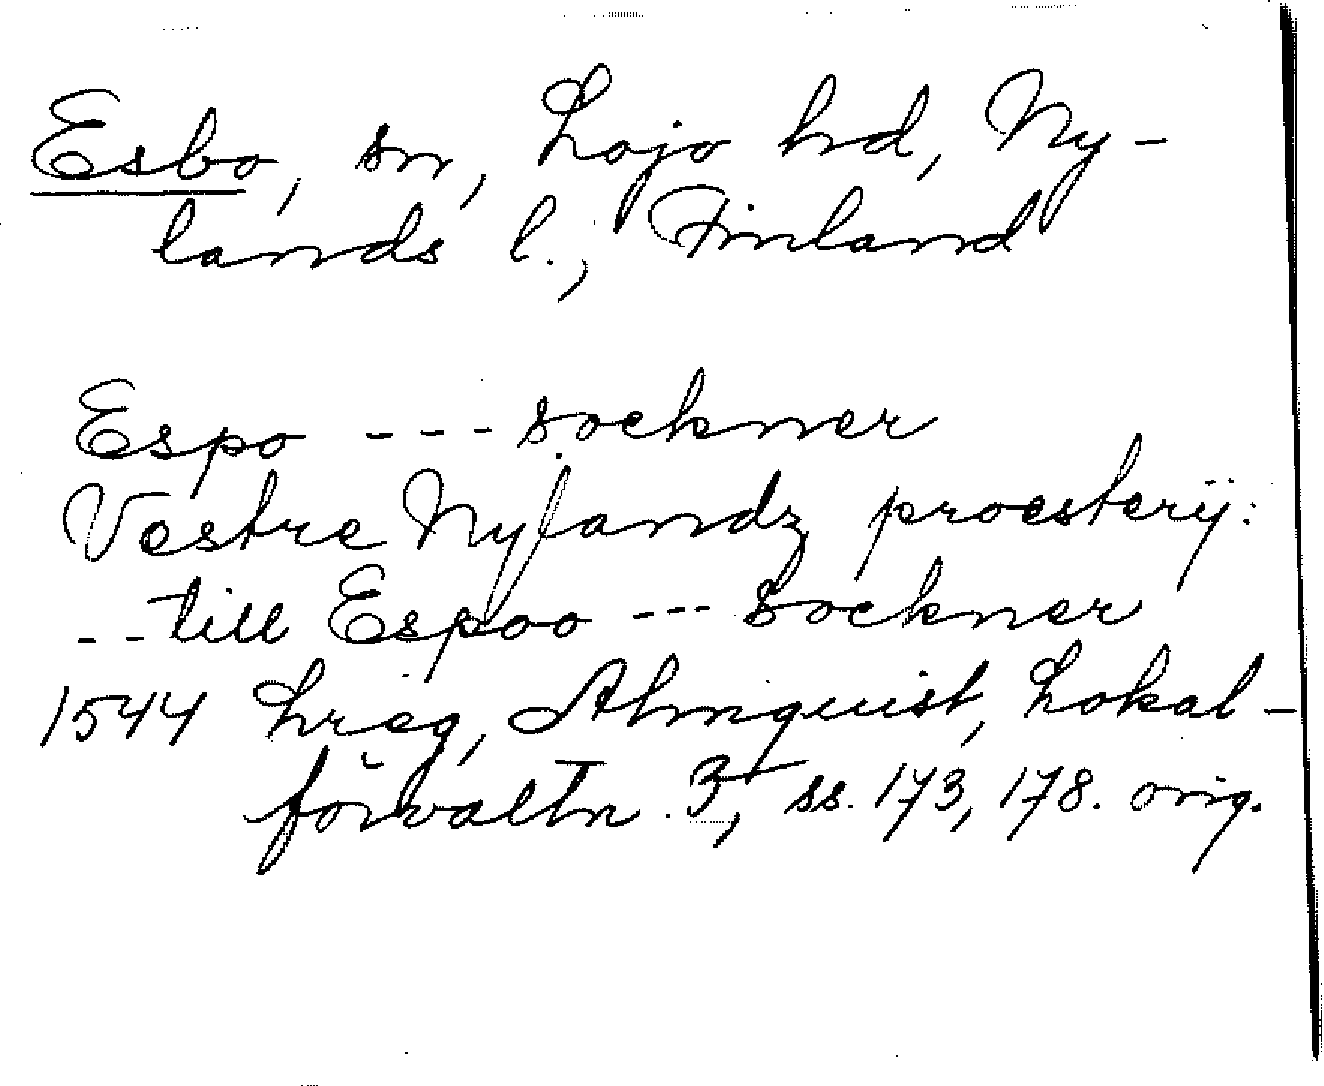 Esbo, sn, Lojo hd, Ny-
lands l., Finland
Espo --- sockner
Vestre Nylandz proesterij:
-- till Espoo --- Sockner
1544 Lreg, Almquist, Lokal-
förvaltn. 3, ss. 173, 178. orig.